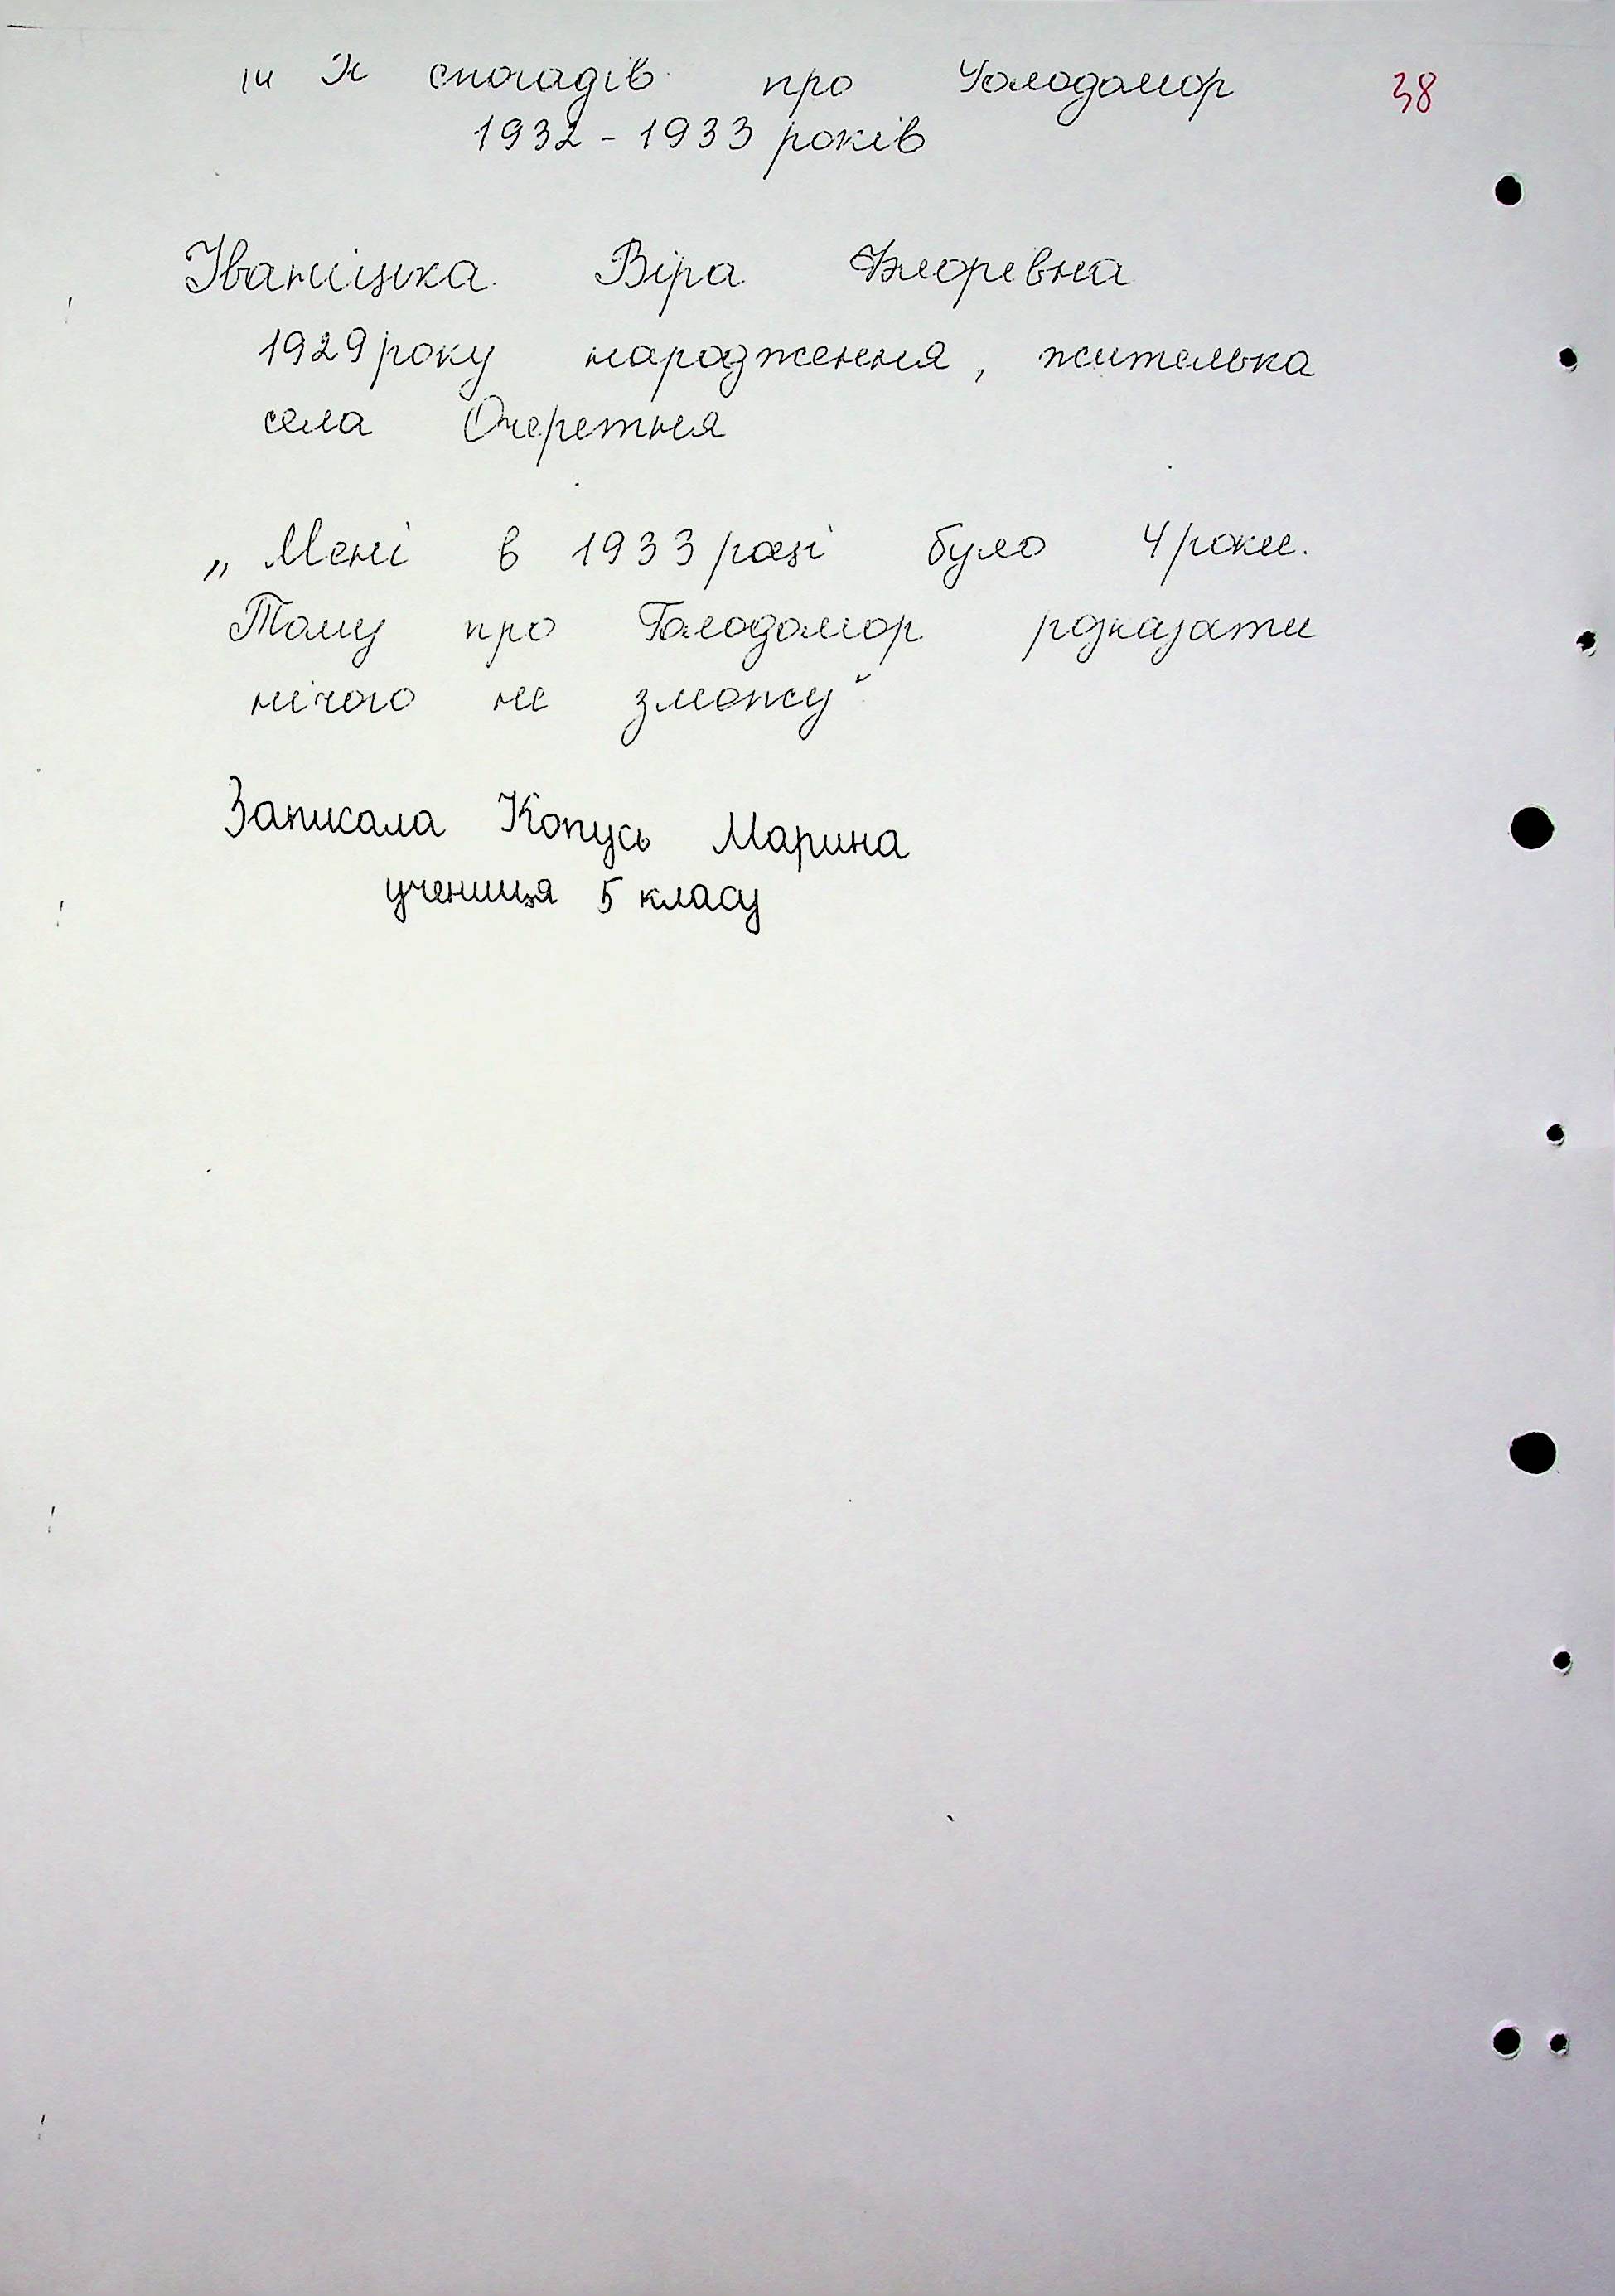 Із спогадів про Голодомор 38
1932-1933 років
Іваніцька Віра
1929 року народження, жителька
села Очеретня
„Мені в 1933 році було 4 роки.
Тому про Голодомор розказати
нічого не зможу"
Записала Копусь Марина
учениця 5 класу